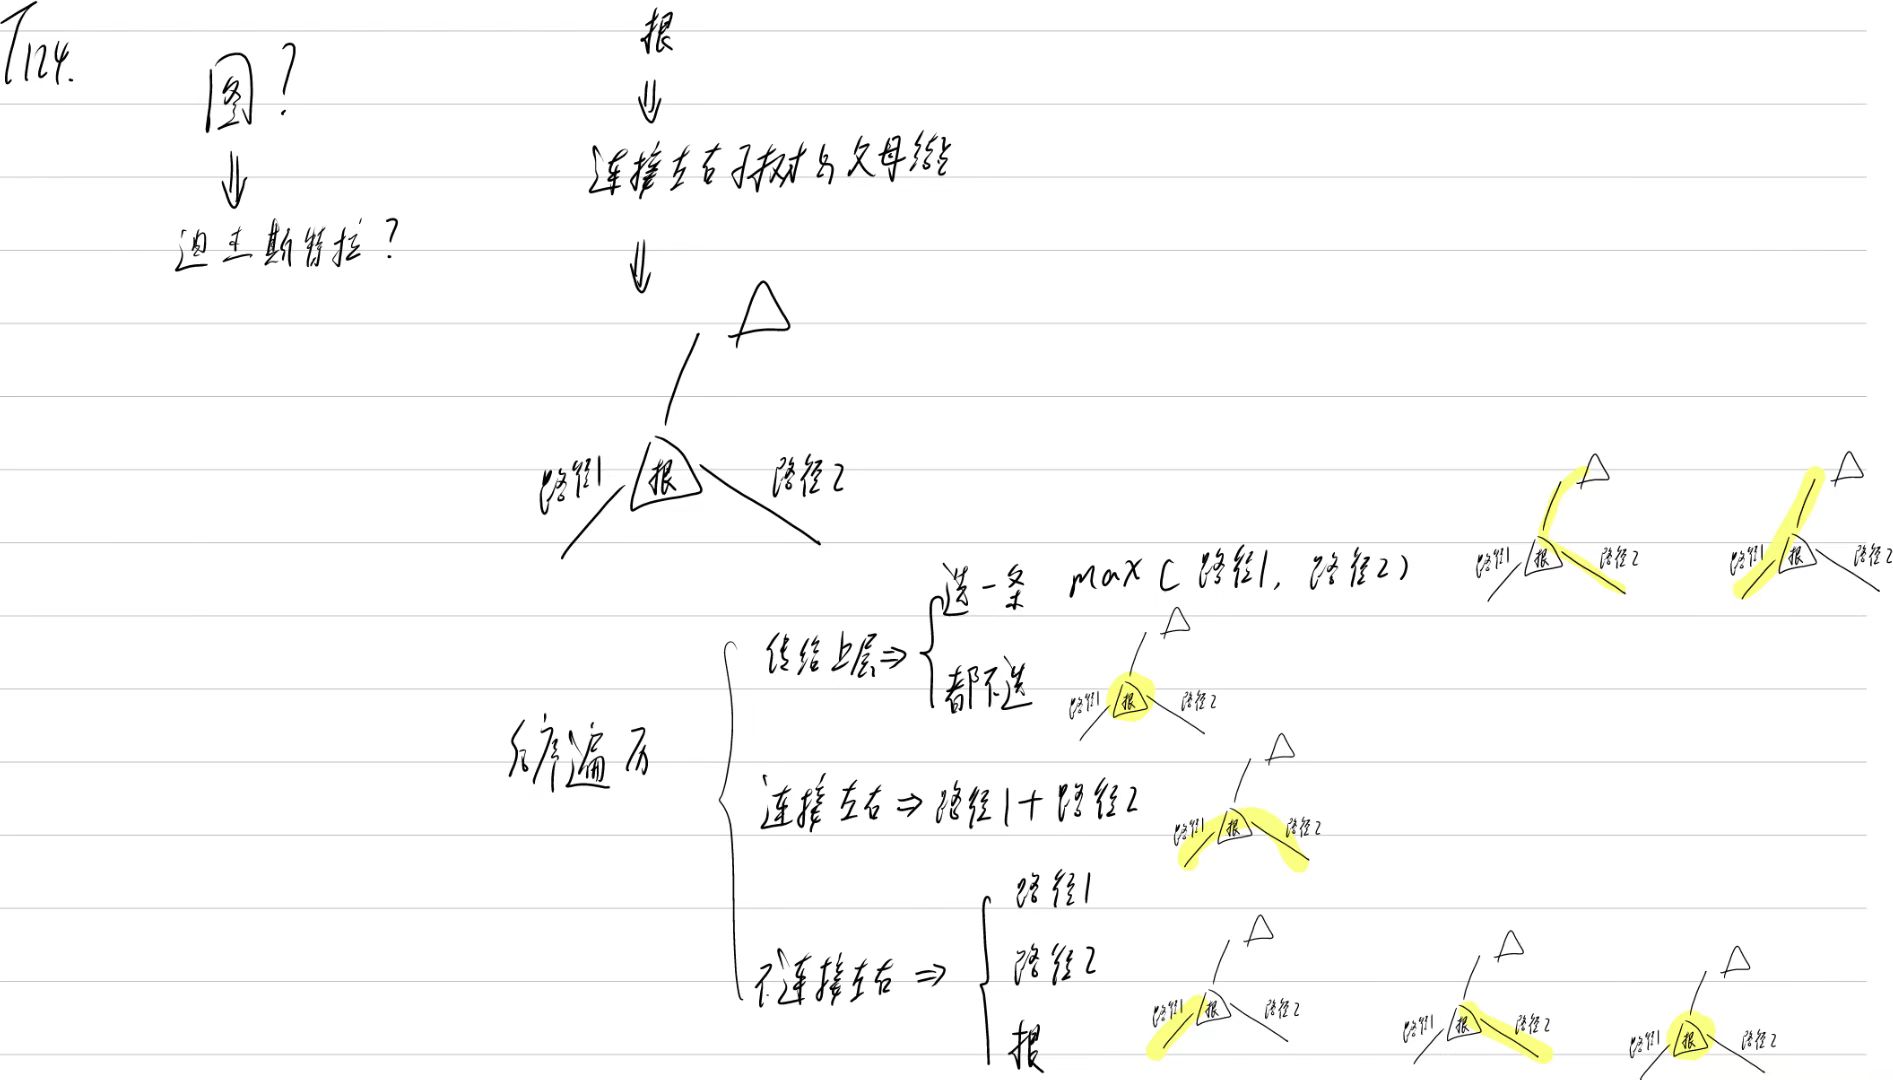 T124.
图?
迪杰斯特拉?
根
连接左右子树与父母结点
路径1
根
路径2
后序遍历
传给上层⇒
选一条 max(路径1, 路径2)
路径1 根 路径2
路径1 根 路径2
都不选
路径1 根 路径2
连接左右⇒路径1+路径2
路径1 根 路径2
不连接左右⇒
路径1
路径2
根
路径1 根 路径2
路径1 根 路径2
路径1 根 路径2